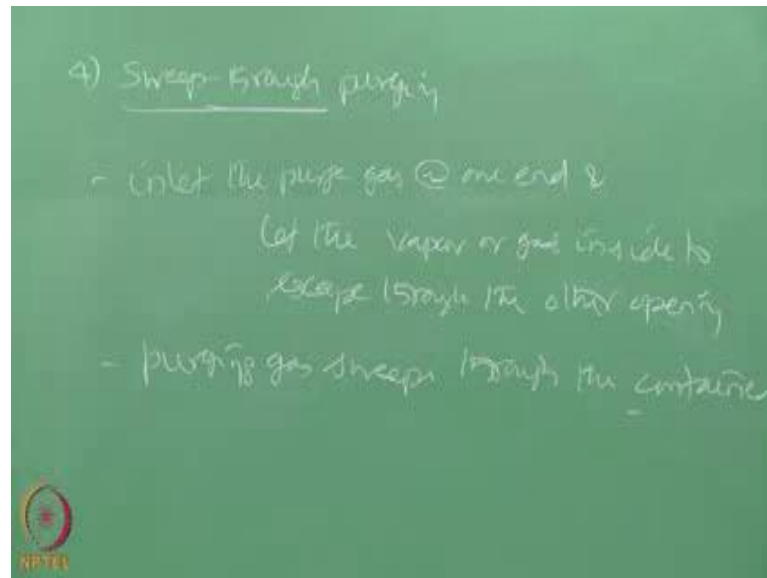 4) Sweep-through purging
- inlet the purge gas @ one end &
let the vapor or gas inside to
escape through the other opening
- purging gas sweeps through the container
NPTEL